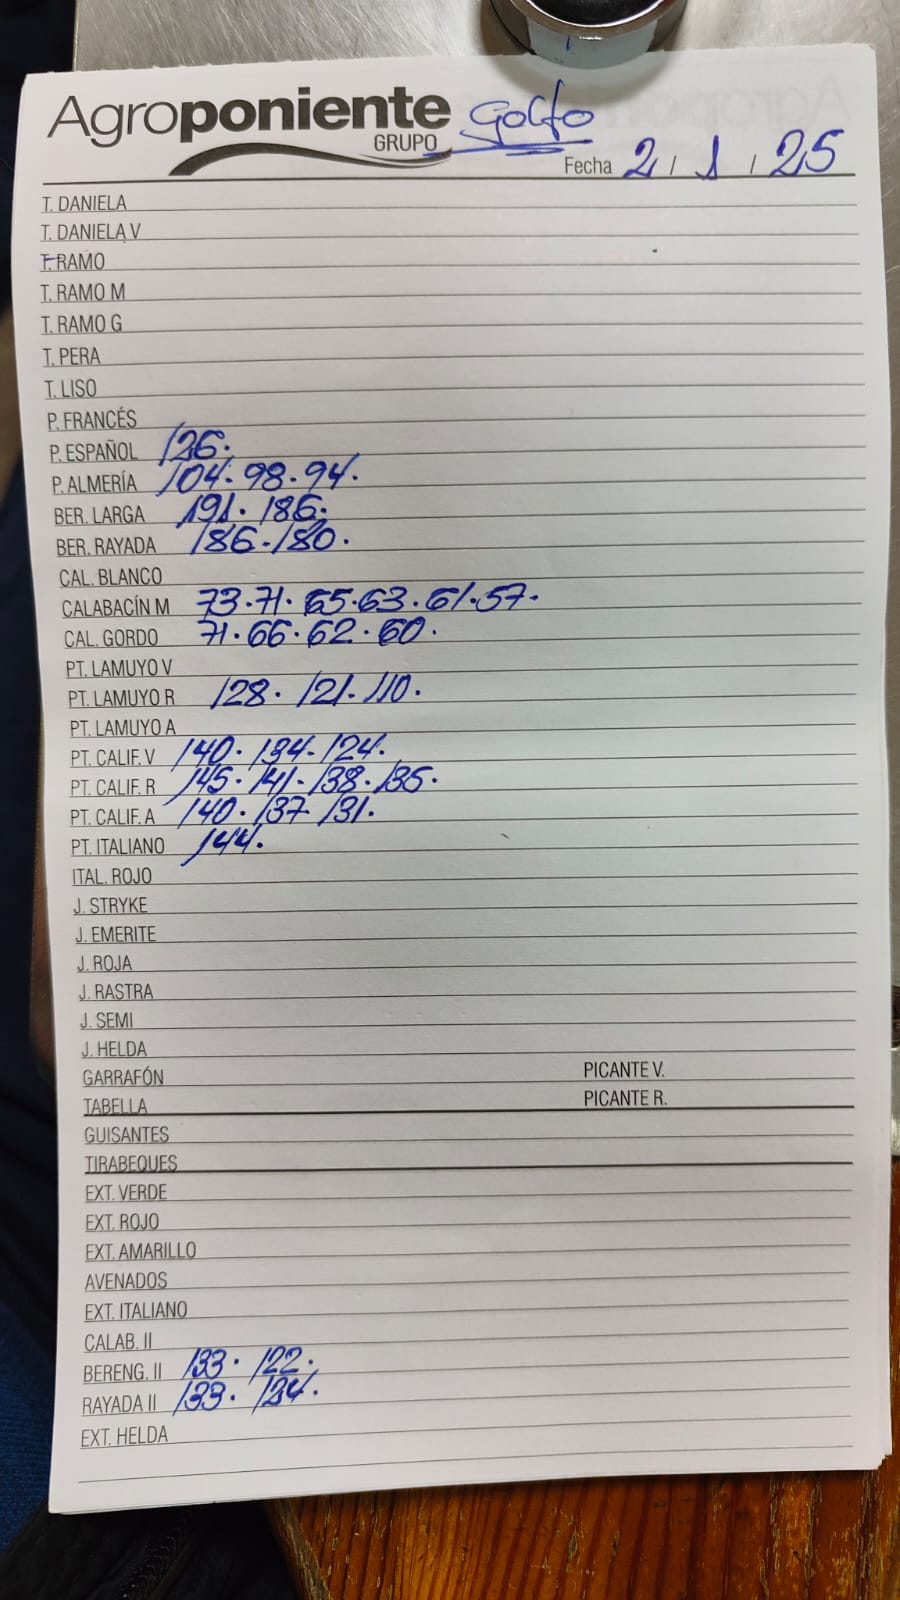 Agroponiente Golfo
GRUPO
Fecha 2 / 1 / 25
T. DANIELA
T. DANIELA V
T. RAMO
T. RAMO M
T. RAMO G
T. PERA
T. LISO
P. FRANCÉS
P. ESPAÑOL 126.
P. ALMERÍA 104. 98. 94.
BER. LARGA 191. 186.
BER. RAYADA 186. 180.
CAL. BLANCO
CALABACÍN M 73. 71. 65. 63. 61. 57.
CAL. GORDO 71. 66. 62. 60.
PT. LAMUYO V
PT. LAMUYO R 128. 121. 110.
PT. LAMUYO A
PT. CALIF. V 140. 134. 124.
PT. CALIF. R 145. 141. 138. 135.
PT. CALIF. A 140. 137 131.
PT. ITALIANO 144.
ITAL. ROJO
J. STRYKE
J. EMERITE
J. ROJA
J. RASTRA
J. SEMI
J. HELDA
GARRAFÓN PICANTE V.
TABELLA PICANTE R.
GUISANTES
TIRABEQUES
EXT. VERDE
EXT. ROJO
EXT. AMARILLO
AVENADOS
EXT. ITALIANO
CALAB. II
BERENG. II 133. 122.
RAYADA II 133.
EXT. HELDA